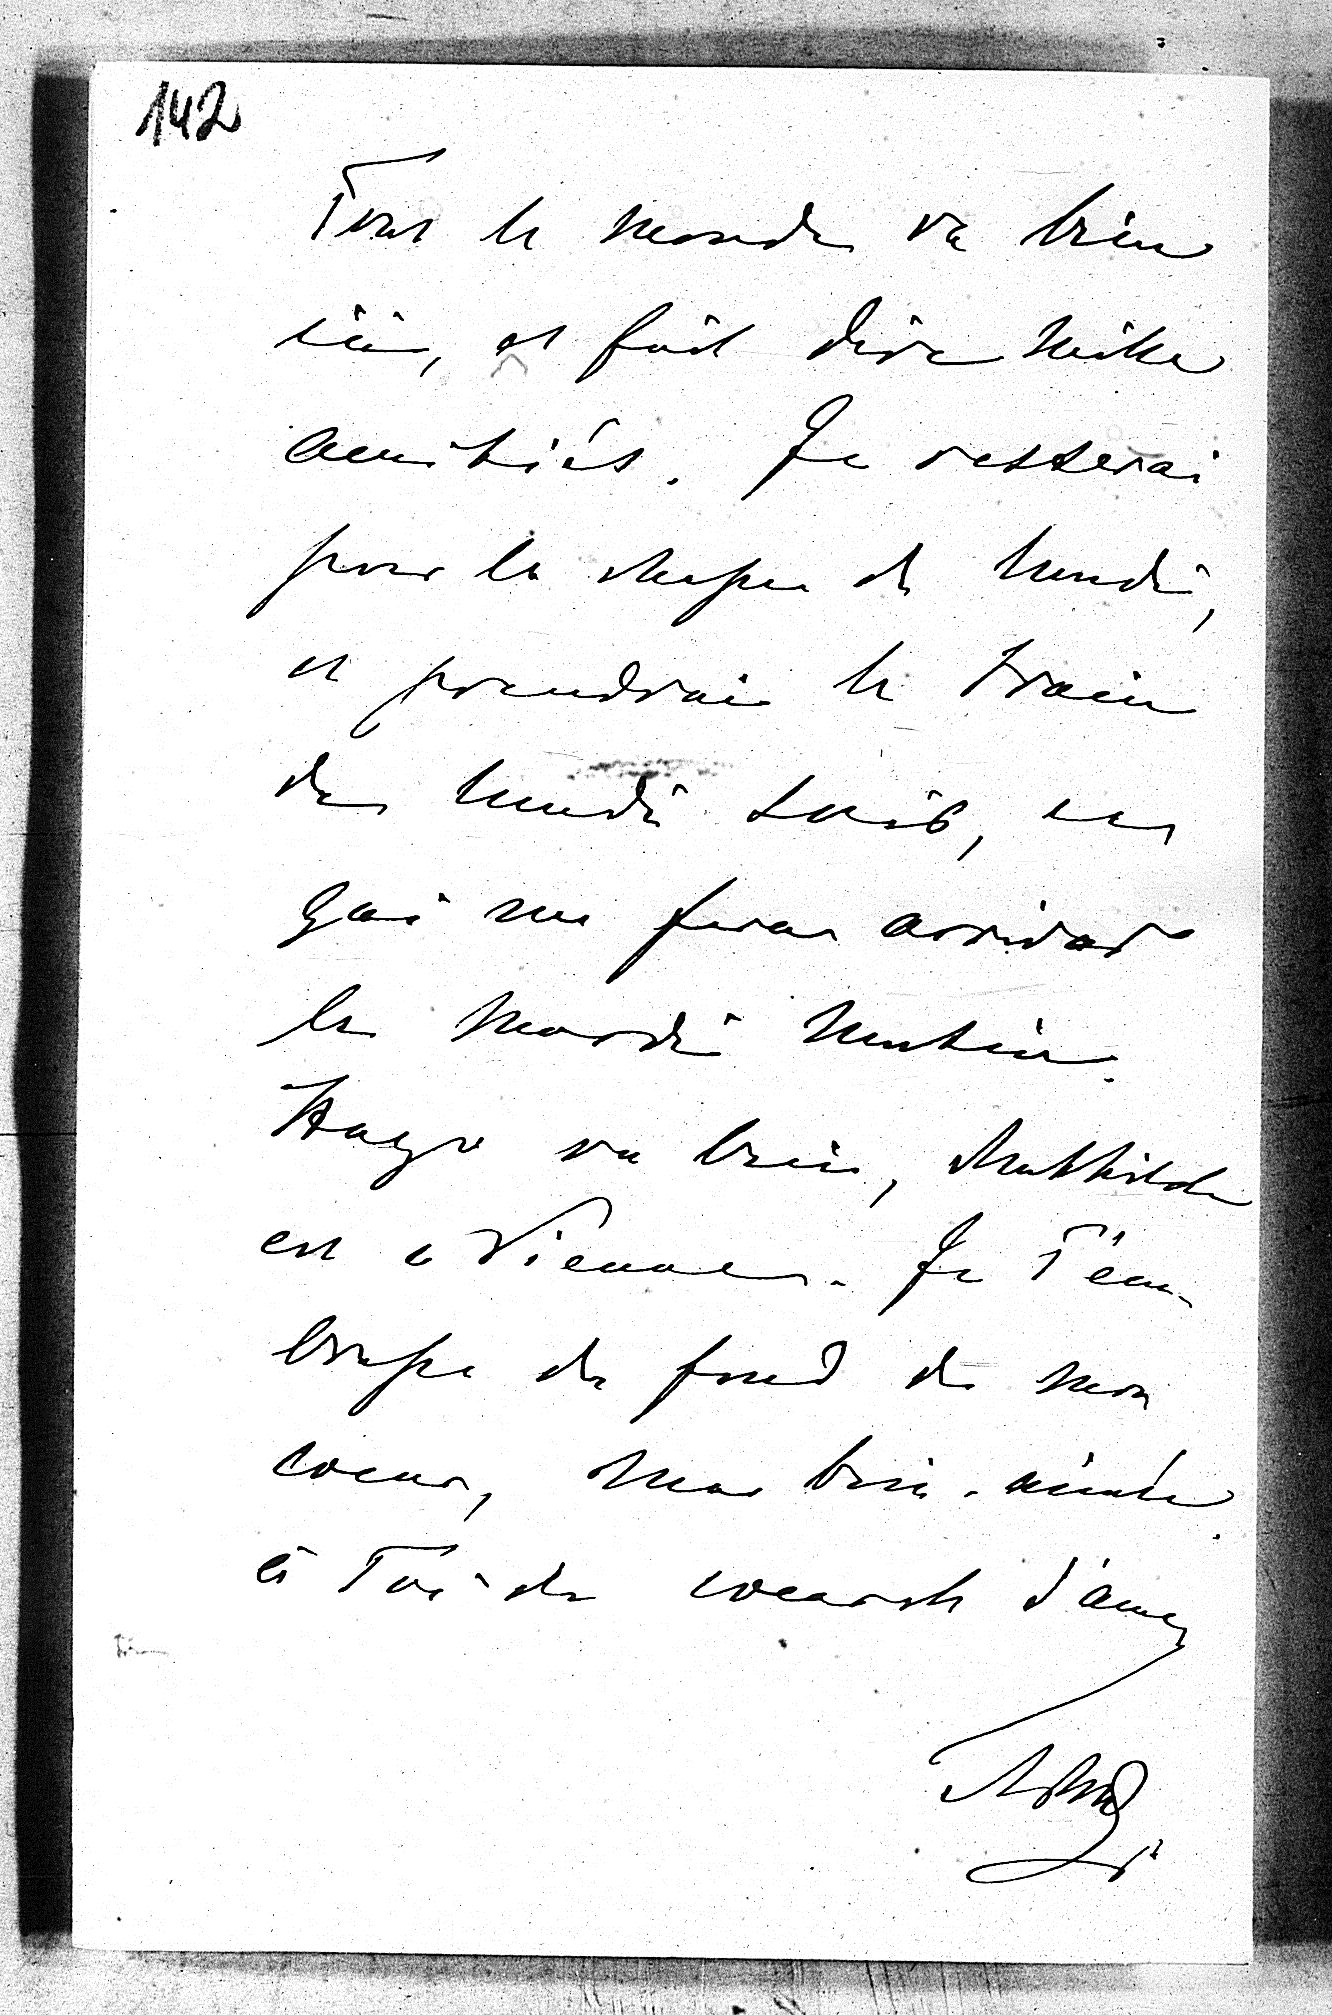 142
Tout le monde va bien
ici, et fait dire mille
amitiés. Je resterai
pour la chasse de lundi,
et prendrai le train
de lundi soir, ce
qui me fera arriver
le mardi matin.
Hugo va bien, Mathilde
est à Vienne. Je T'em-
brasse du fond de mon
coeur, ma bien-aimée.
à Toi de coeur et d'âme